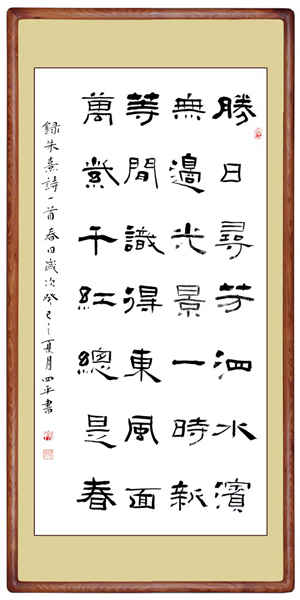 勝日尋芳泗水濱
無邊光景一時新
等閒識得東風面
萬紫千紅總是春
録朱熹詩一首春日歲次癸巳夏月四平書